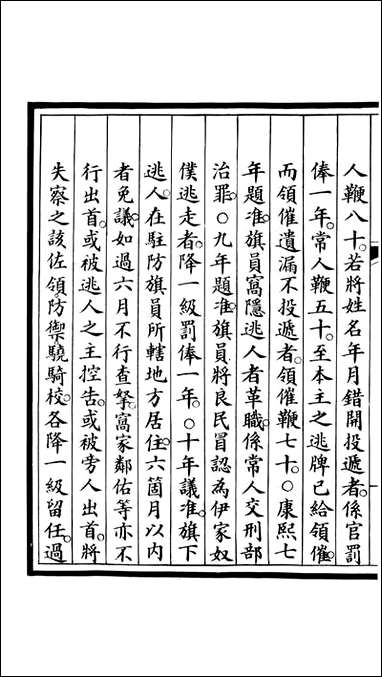 人鞭八十。若將姓名年月錯開投遞者。係官罰
俸一年。常人鞭五十。至本主之逃牌已給領催。
而領催遺漏不投遞者。領催鞭七十。○康熙七
年題准。旗員窩隱逃人者革職。係常人交刑部
治罪。○九年題准。旗員將良民冒認為伊家奴
僕逃走者。降一級罰俸一年。○十年議准。旗下
逃人。在駐防旗員所轄地方居住。六箇月以內
者免議。如過六月不行查拏。窩家鄰佑等亦不
行出首。或被逃人之主控告。或被旁人出首。將
失察之該佐領防禦驍騎校。各降一級留任。過